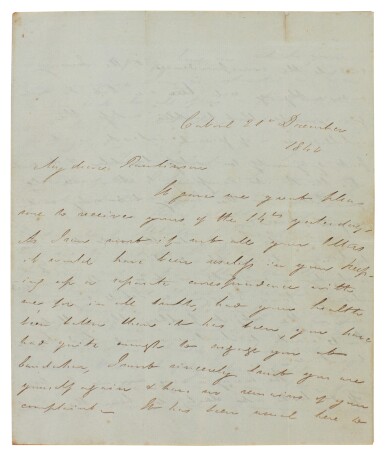 Cabul 21st December
1840
My dear Rawlinson
It gave me great plea
sure to receive yours of the 14th yesterday,
As I saw most if not all your letters
it would have been useless in your keep
ing up a separate correspondence with
me for in all truth, had your health
been better than it has been, you have
had quite enough to engage you at
Candahar, I most sincerely trust you are
yourself again & have no remains of your
complaint — It has been usual here to